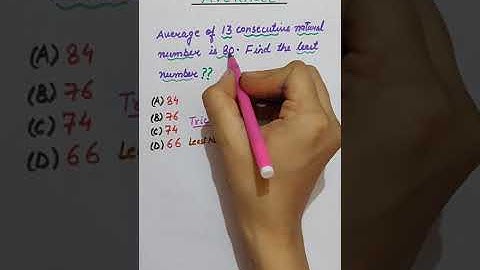 Average of 13 consecutive natural
number is 80. Find the least
number ??
(A) 84
(B) 76
(C) 74
(D) 66
(A) 84
(B) 76
(C) 74
(D) 66 Least